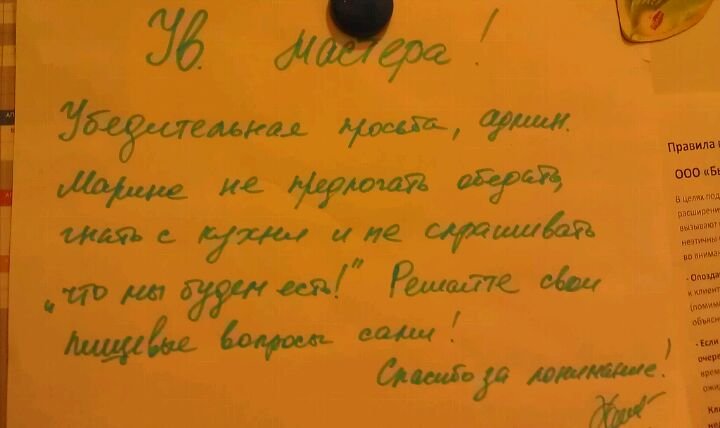 Ув. мастера!
Убедительная просьба, админ.
Марине не предлогать обедать,
гнать с кухни и не спрашивать
„что мы будем есть!" Решайте свои
пищевые вопросы сами!
Спасибо за понимание!
Правила
ООО «Бы
В целях под
расширени
вызывают
неэтичны
во вниман
- Опозда
к клиент
(помим
объясн
- Если
очере
врем
ожи
Кли